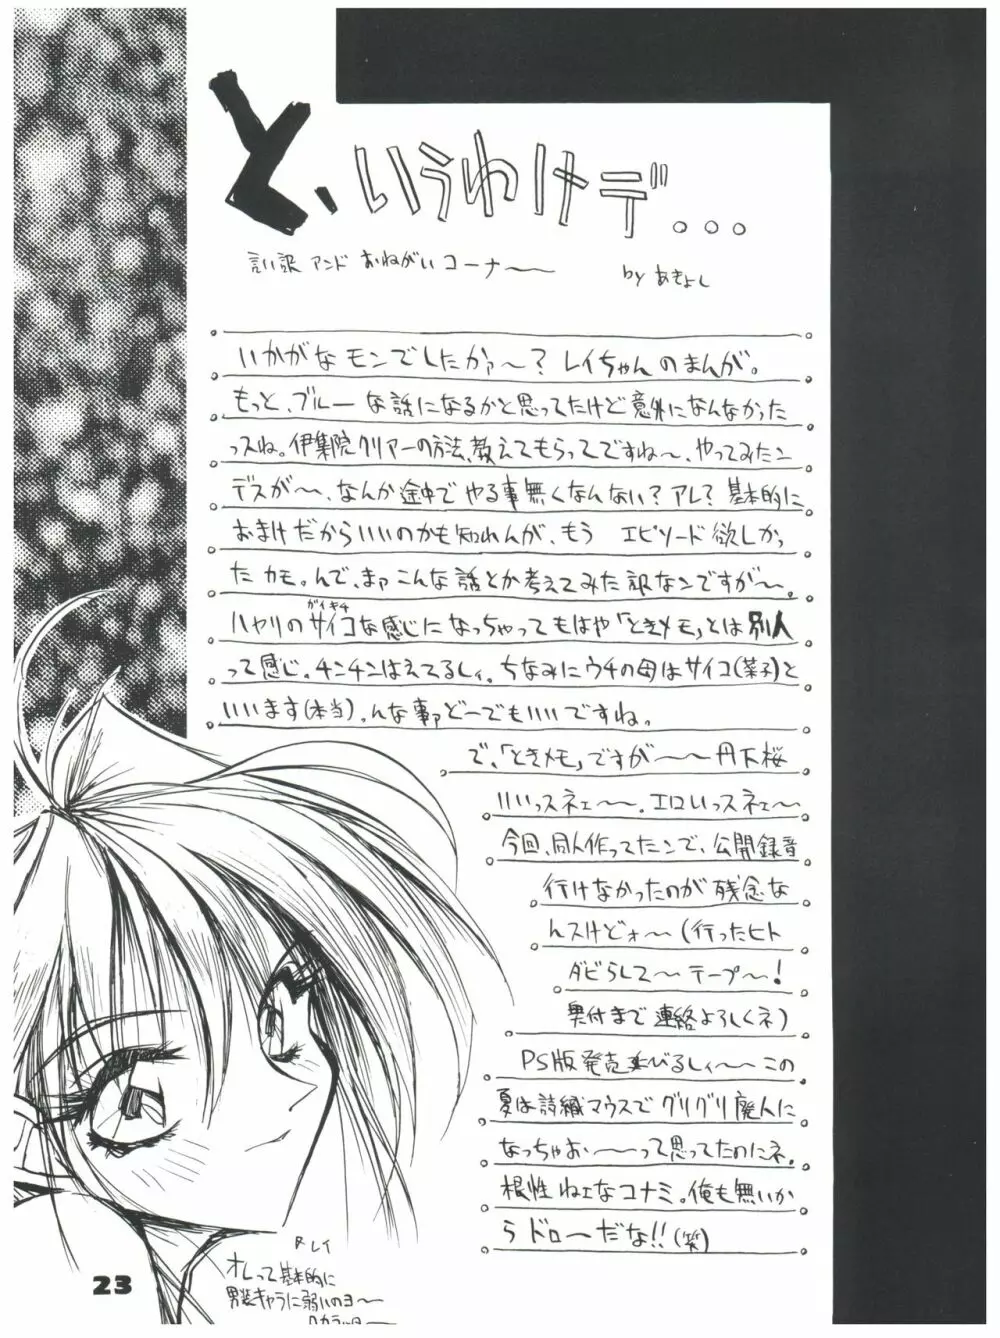 と、いうわけデ...
言い訳 アンド おねがい コーナー〜〜
by あきよし
いかがなモンでしたかァ〜？レイちゃんのまんが。
もっと、ブルーな話になるかと思ってたけど意外になんなかった
っスね。伊集院クリアーの方法、教えてもらってですね〜、やってみたン
デスが〜、なんか途中でやる事無くなんない？アレ？基本的に
おまけだからいいのかも知れんが、もう エピソード欲しかっ
たカモ。んで、まァこんな話とか考えてみた訳なンですが〜。
ハヤリのサイコな感じになっちゃってもはや「ときメモ」とは別人
ガイキチ
って感じ。チンチンはえてるしィ。ちなみにウチの母はサイコ(菜子)と
いいます(本当)。んな事ァどーでもいいですね。
で、「ときメモ」ですが〜〜丹下桜
いいっスネェ〜〜。エロいっスネェ〜
今回、同人作ってたンで、公開録音
行けなかったのが残念な
んスけどォ〜（行ったヒト
ダビらして〜テープ〜！
奥付まで連絡よろしくネ）
PS版発売延びるしィ〜〜この
夏は詩織マウスでグリグリ廃人に
なっちゃお〜〜って思ってたのにネ。
根性ねェなコナミ。俺も無いか
らドローだな!!(笑)
レイ
オレって基本的に
男装キャラに弱いのヨ〜
23